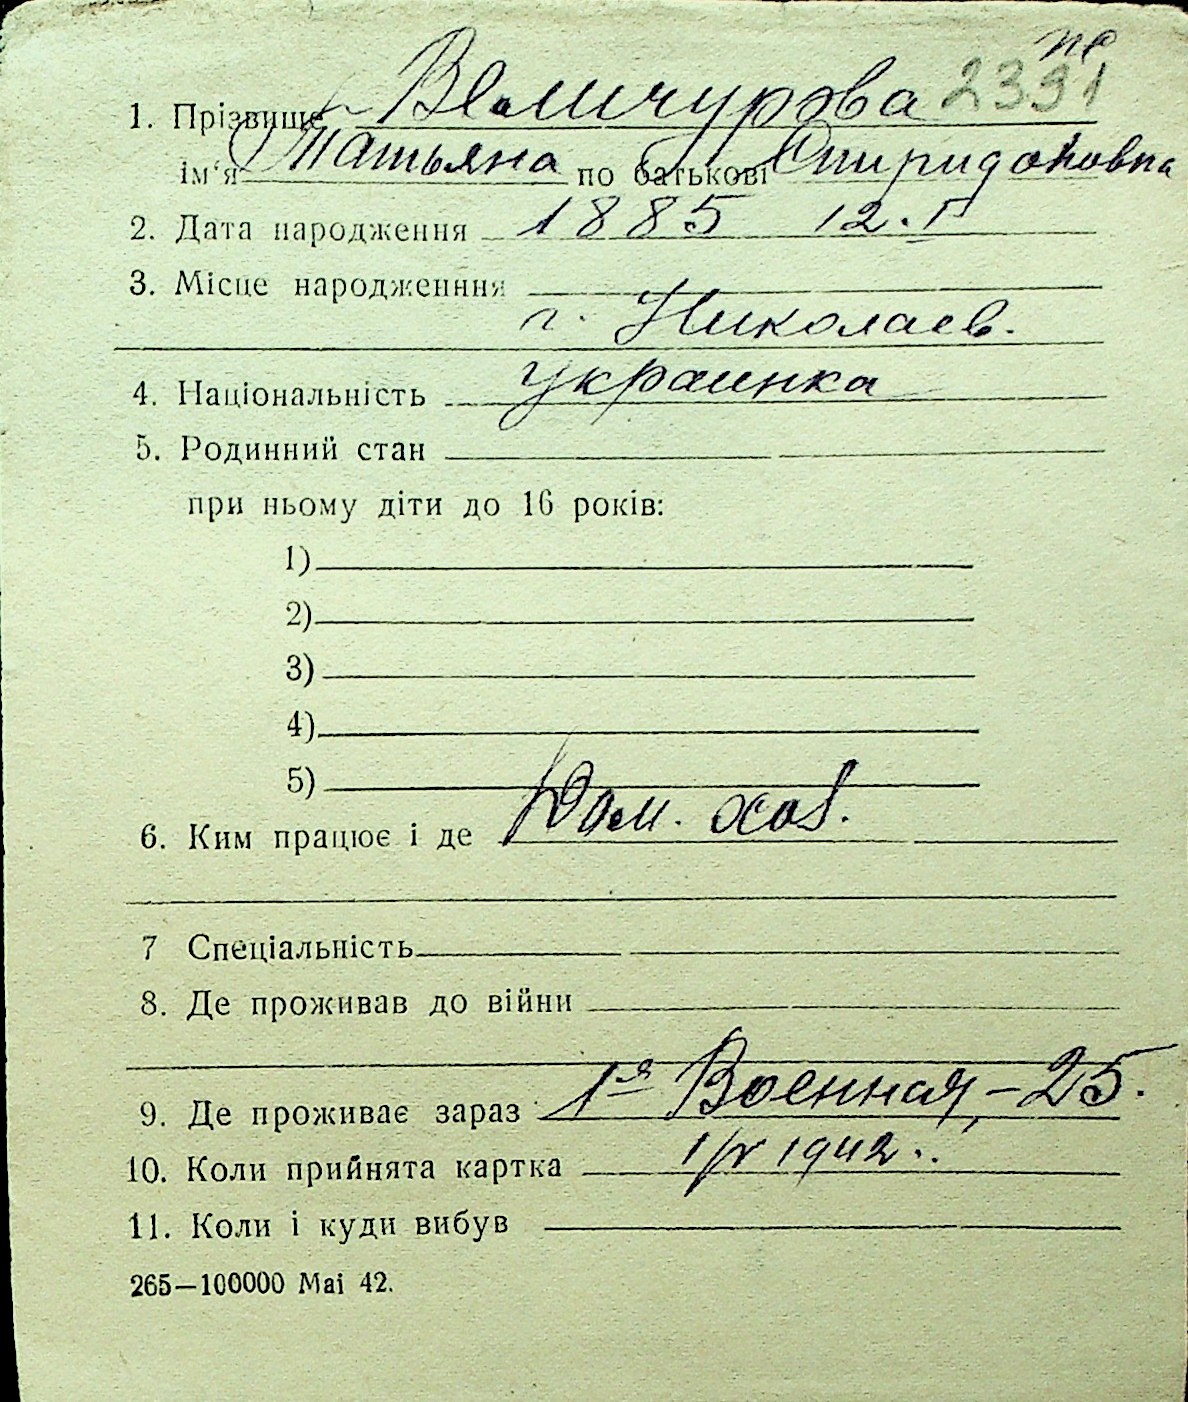 2391
1. Прізвище Величурова
ім'я Татьяна по батькові Спиридоновна
2. Дата народження 1885 12.I
3. Місце народженння
г. Николаев.
4. Національність украинка
5. Родинний стан
при ньому діти до 16 років:
1)
2)
3)
4)
5)
6. Ким працює і де Дом. хоз.
7 Спеціальність
8. Де проживав до війни
9. Де проживає зараз 1я Военная, - 25.
10. Коли прийнята картка 1/V 1942.
11. Коли і куди вибув
265—100000 Маі 42.